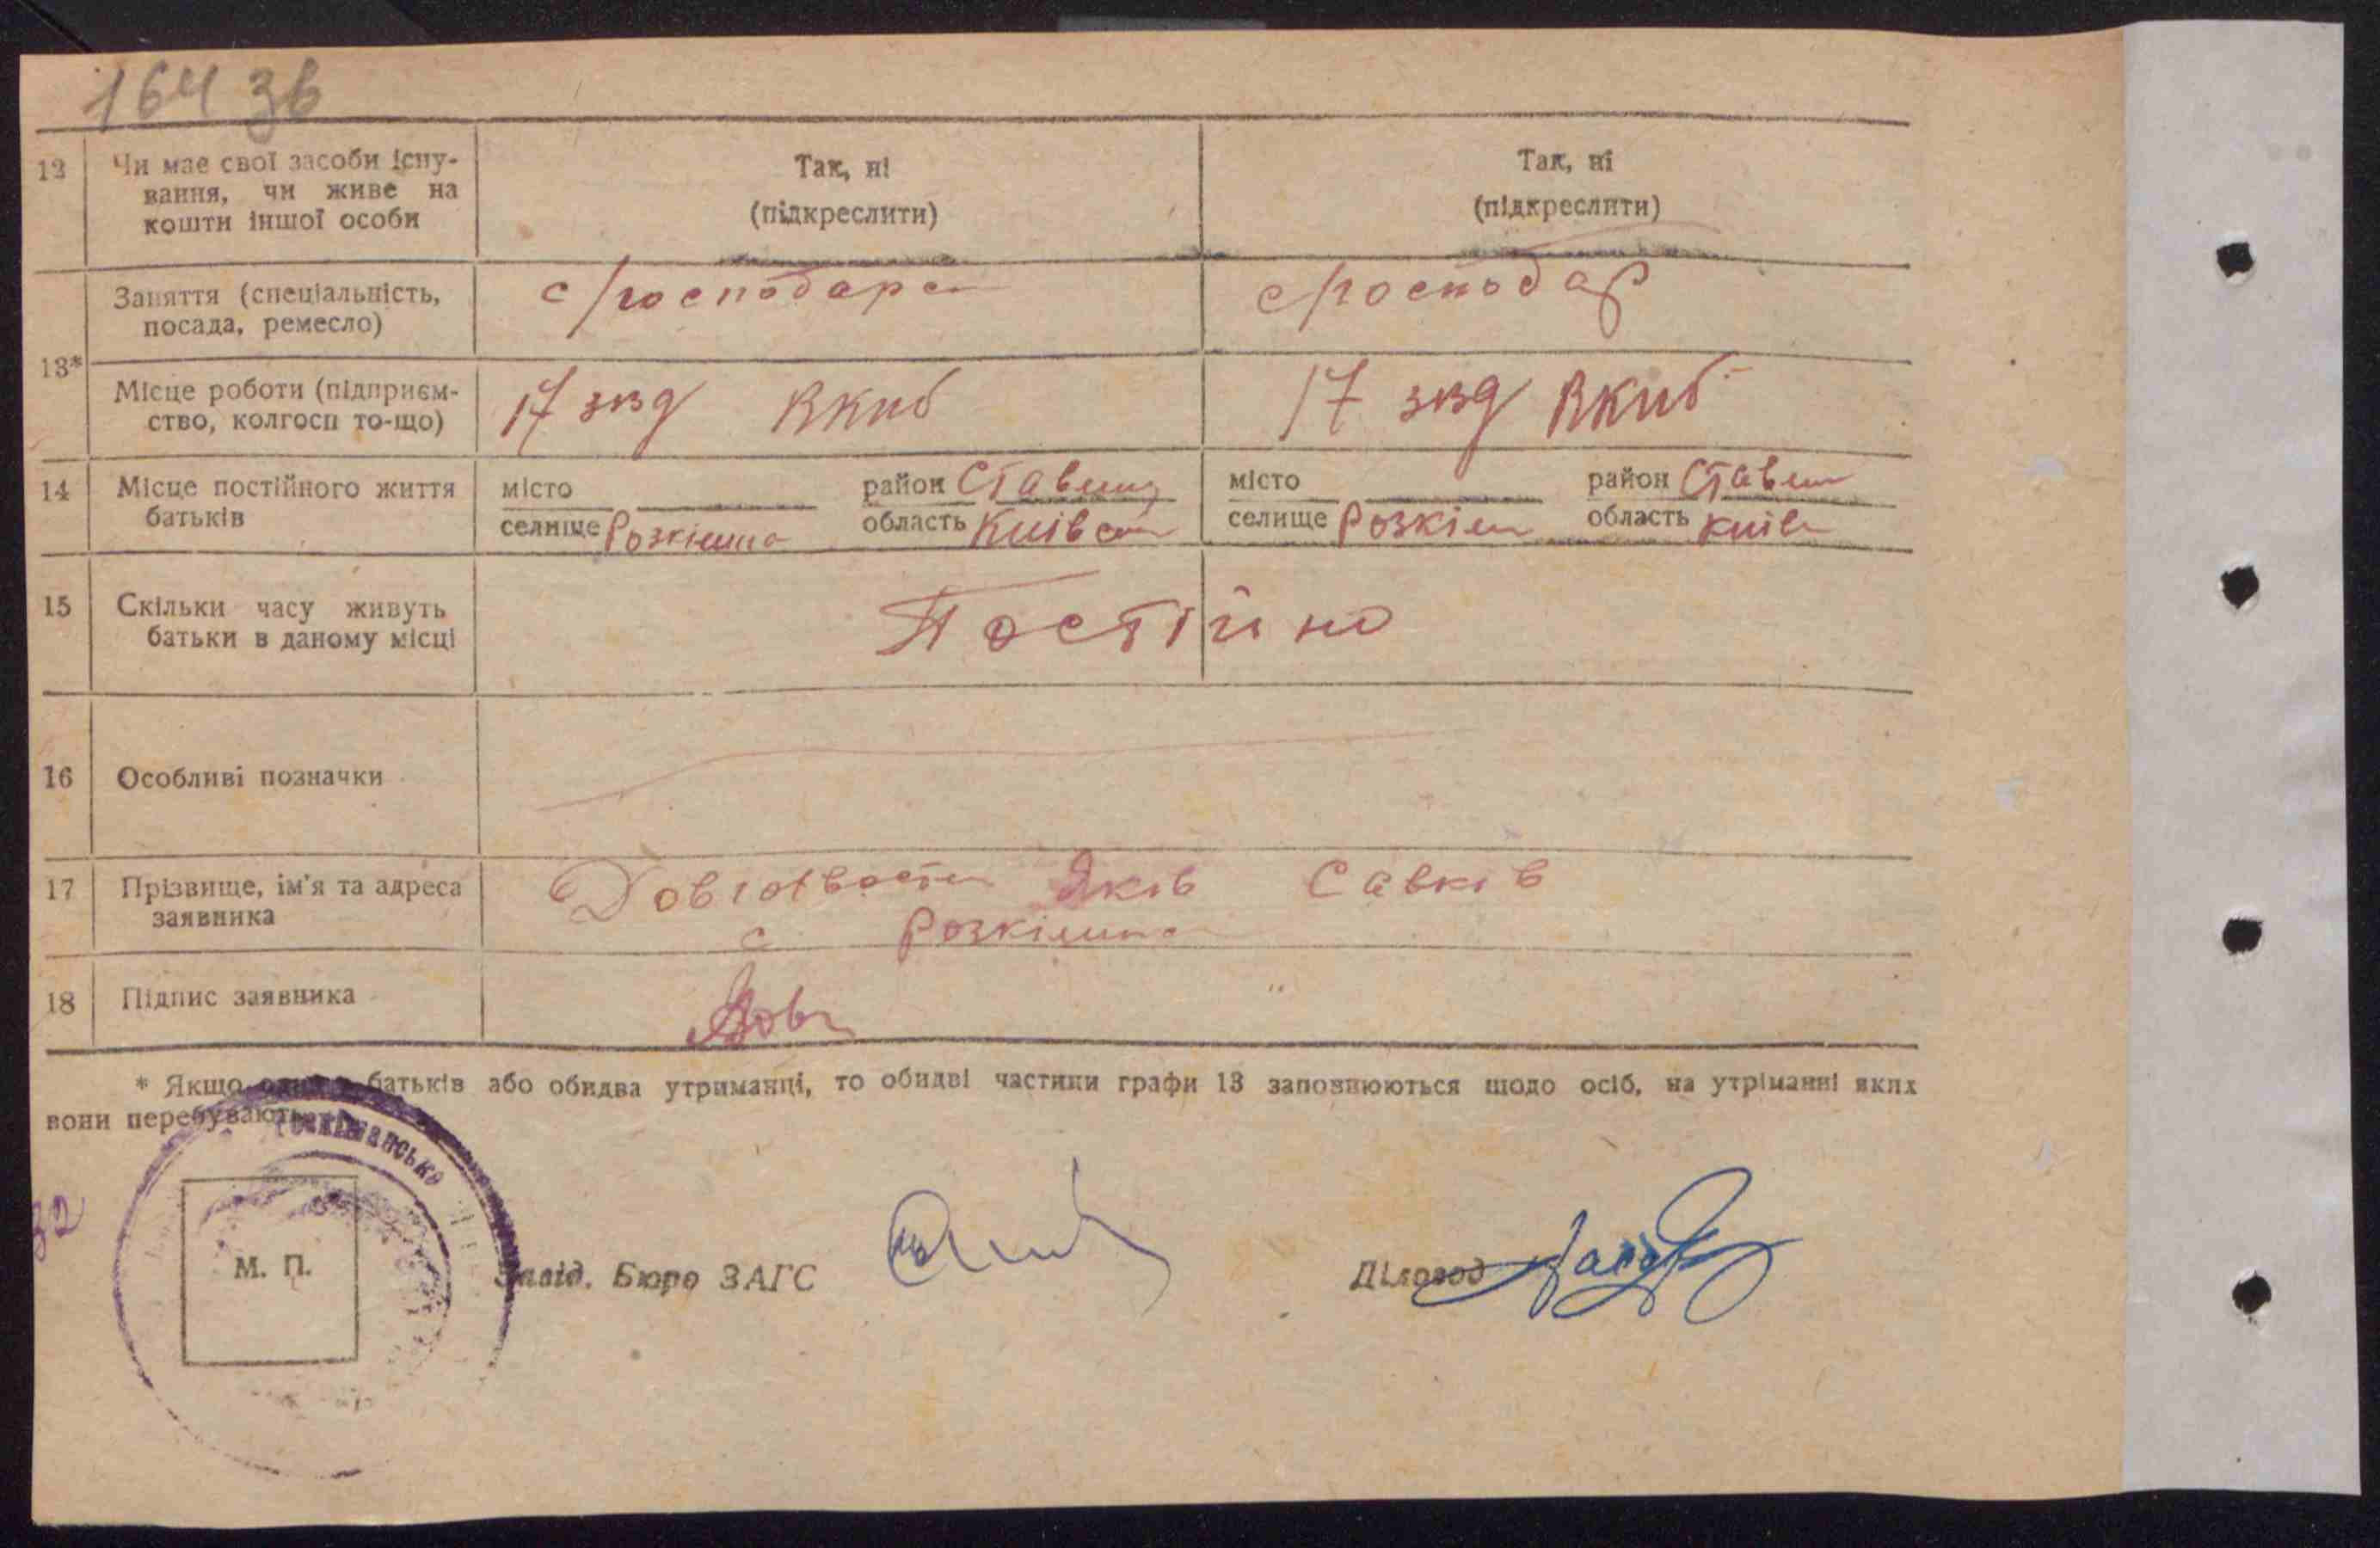 164 зв
12 Чи має свої засоби існу-
вання, чи живе на
кошти іншої особи
Так, ні
(підкреслити)
Так, ні
(підкреслити)
13*
Заняття (спеціальність,
посада, ремесло)
с/господарс
с/господар
Місце роботи (підприєм-
ство, колгосп то-що)
17 ЗВД ВКПб
17 ЗВД ВКПб
14 Місце постійного життя
батьків
місто район Ставищ
селище Розкішна область Київс
місто район Ставищ
селище Розкіш область Київ
15 Скільки часу живуть
батьки в даному місці
Постійно
16 Особливі позначки
17 Прізвище, ім'я та адреса
заявника
Яків Савків
с Розкішна
18 Підпис заявника
Довг
* Якщо один з батьків або обидва утриманці, то обидві частини графи 13 заповнюються щодо осіб, на утріманні яких
вони перебувають.
М. П.
Завід. Бюро ЗАГС
Діловод